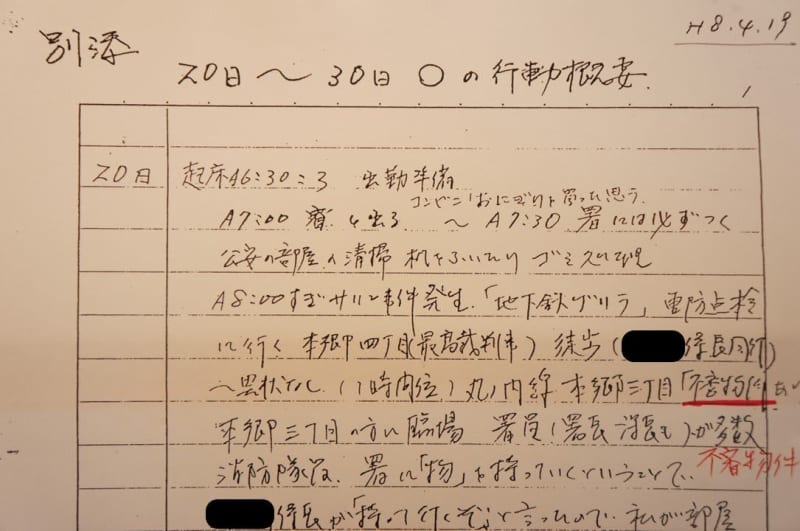 H8.4.19
別添
20日〜30日 〇の行動概要
1
20日 起床A6:30ころ 出勤準備
コンビニでおにぎりを買ったと思う
A7:00 寮を出る 〜A7:30 署には必ずつく
公安の部屋の清掃 机をふいたり ゴミ
A8:00すぎサリン事件発生「地下鉄ゲリラ」 警防点検
に行く 本郷四丁目(最高裁判事) 徒歩( 係長同行)
〜異状なし(1時間位)丸ノ内線 本郷三丁目「不審物件」あ
本郷三丁目の方に臨場 署員(署長 課長も)が多数
消防隊役 署に「物」を持っていくということで、 不審物件
係長が「持って行くぞ」と言ったので、私が部屋